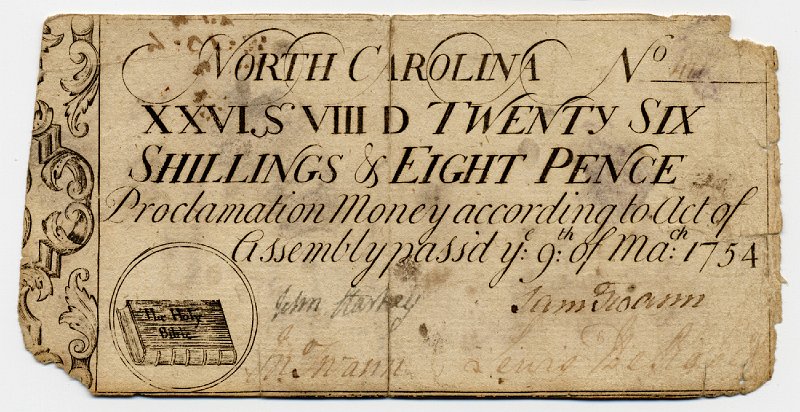 NORTH CAROLINA No
XXVI,S VIII D TWENTY SIX
SHILLINGS & EIGHT PENCE
Proclamation Money according to Act of
Assembly pass'd ye. 9:th of Mach: 1754
The Holy
Bible
John Starkey
Sam Swann
Jno Swann
Lewis De